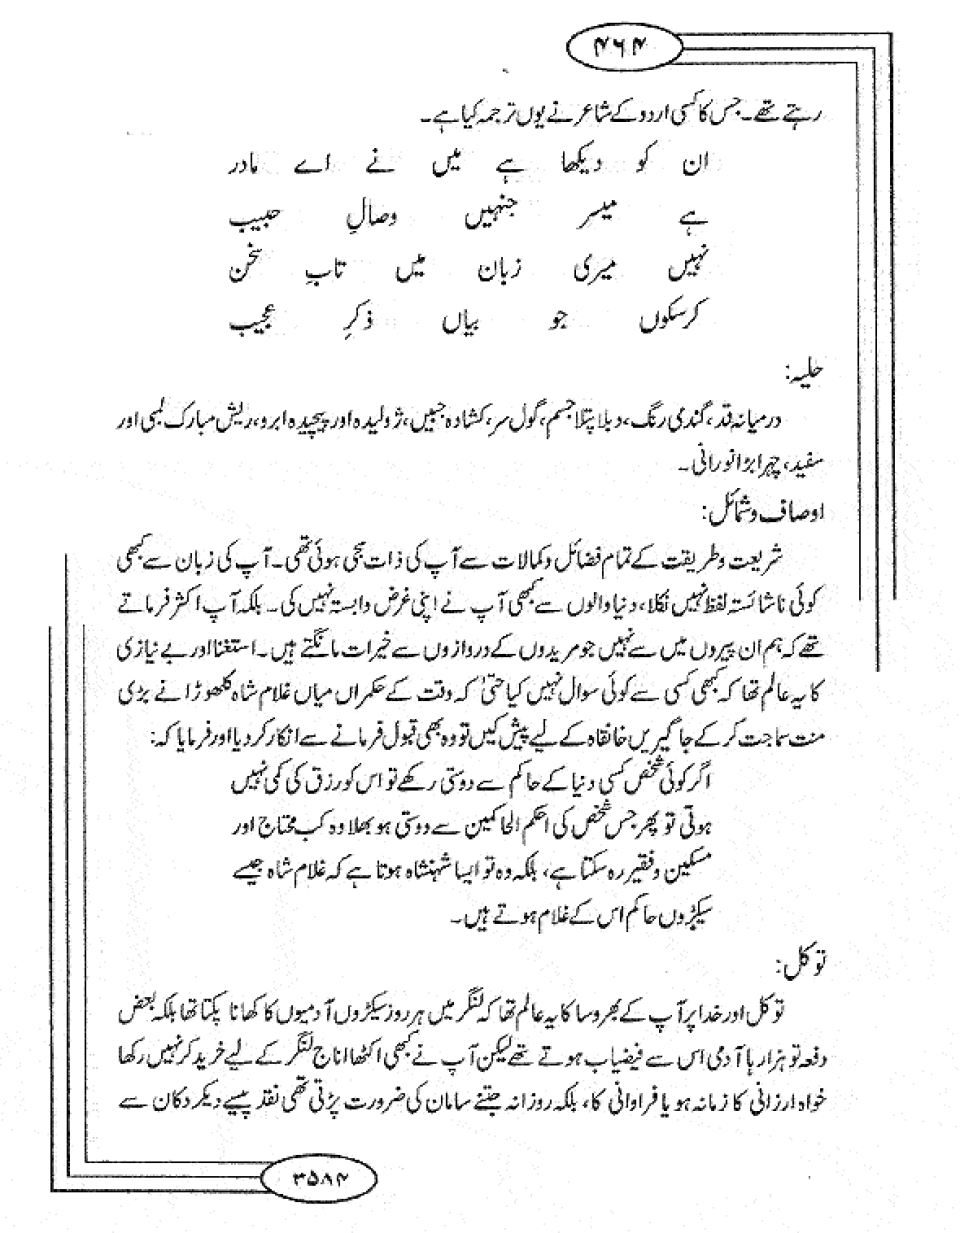 ۴۶۴
رہتے تھے۔ جس کا کسی اردو کے شاعر نے یوں ترجمہ کیا ہے۔
ان کو دیکھا ہے میں نے اے مادر
ہے میسر جنہیں وصالِ حبیب
نہیں میری زبان میں تابِ سخن
کرسکوں جو بیاں ذکرِ عجیب
حلیہ:
درمیانہ قد، گندی رنگ، دبلا پتلا جسم، گول سر، کشادہ جبیں، ژولیدہ اور پیچیدہ ابرو، ریش مبارک لمبی اور
سفید، چہرا بڑا نورانی۔
اوصاف و شمائل:
شریعت و طریقت کے تمام فضائل و کمالات سے آپ کی ذات سجی ہوئی تھی۔ آپ کی زبان سے کبھی
کوئی ناشائستہ لفظ نہیں نکلا، دنیا والوں سے کبھی آپ نے اپنی غرض وابستہ نہیں کی۔ بلکہ آپ اکثر فرماتے
تھے کہ ہم ان پیروں میں سے نہیں جو مریدوں کے دروازوں سے خیرات مانگتے ہیں۔ استغنا اور بے نیازی
کا یہ عالم تھا کہ کبھی کسی سے کوئی سوال نہیں کیا حتیٰ کہ وقت کے حکمراں میاں غلام شاہ کلھوڑا نے بڑی
منت سماجت کر کے جاگیریں خانقاہ کے لیے پیش کیں تو وہ بھی قبول فرمانے سے انکار کر دیا اور فرمایا کہ:
اگر کوئی شخص کسی دنیا کے حاکم سے دوستی رکھے تو اس کو رزق کی کمی نہیں
ہوتی تو پھر جس شخص کی احکم الحاکمین سے دوستی ہو بھلا وہ کب محتاج اور
مسکین و فقیر رہ سکتا ہے، بلکہ وہ تو ایسا شہنشاہ ہوتا ہے کہ غلام شاہ جیسے
سیکڑوں حاکم اس کے غلام ہوتے ہیں۔
توکل:
توکل اور خدا پر آپ کے بھروسا کا یہ عالم تھا کہ لنگر میں ہر روز سیکڑوں آدمیوں کا کھانا پکتا تھا بلکہ بعض
دفعہ تو ہزار ہا آدمی اس سے فیضیاب ہوتے تھے لیکن آپ نے کبھی اکٹھا اناج لنگر کے لیے خرید کر نہیں رکھا
خواہ ارزانی کا زمانہ ہو یا فراوانی کا، بلکہ روزانہ جتنے سامان کی ضرورت پڑتی تھی نقد پیسے دیکر دکان سے
۳۵۸۴